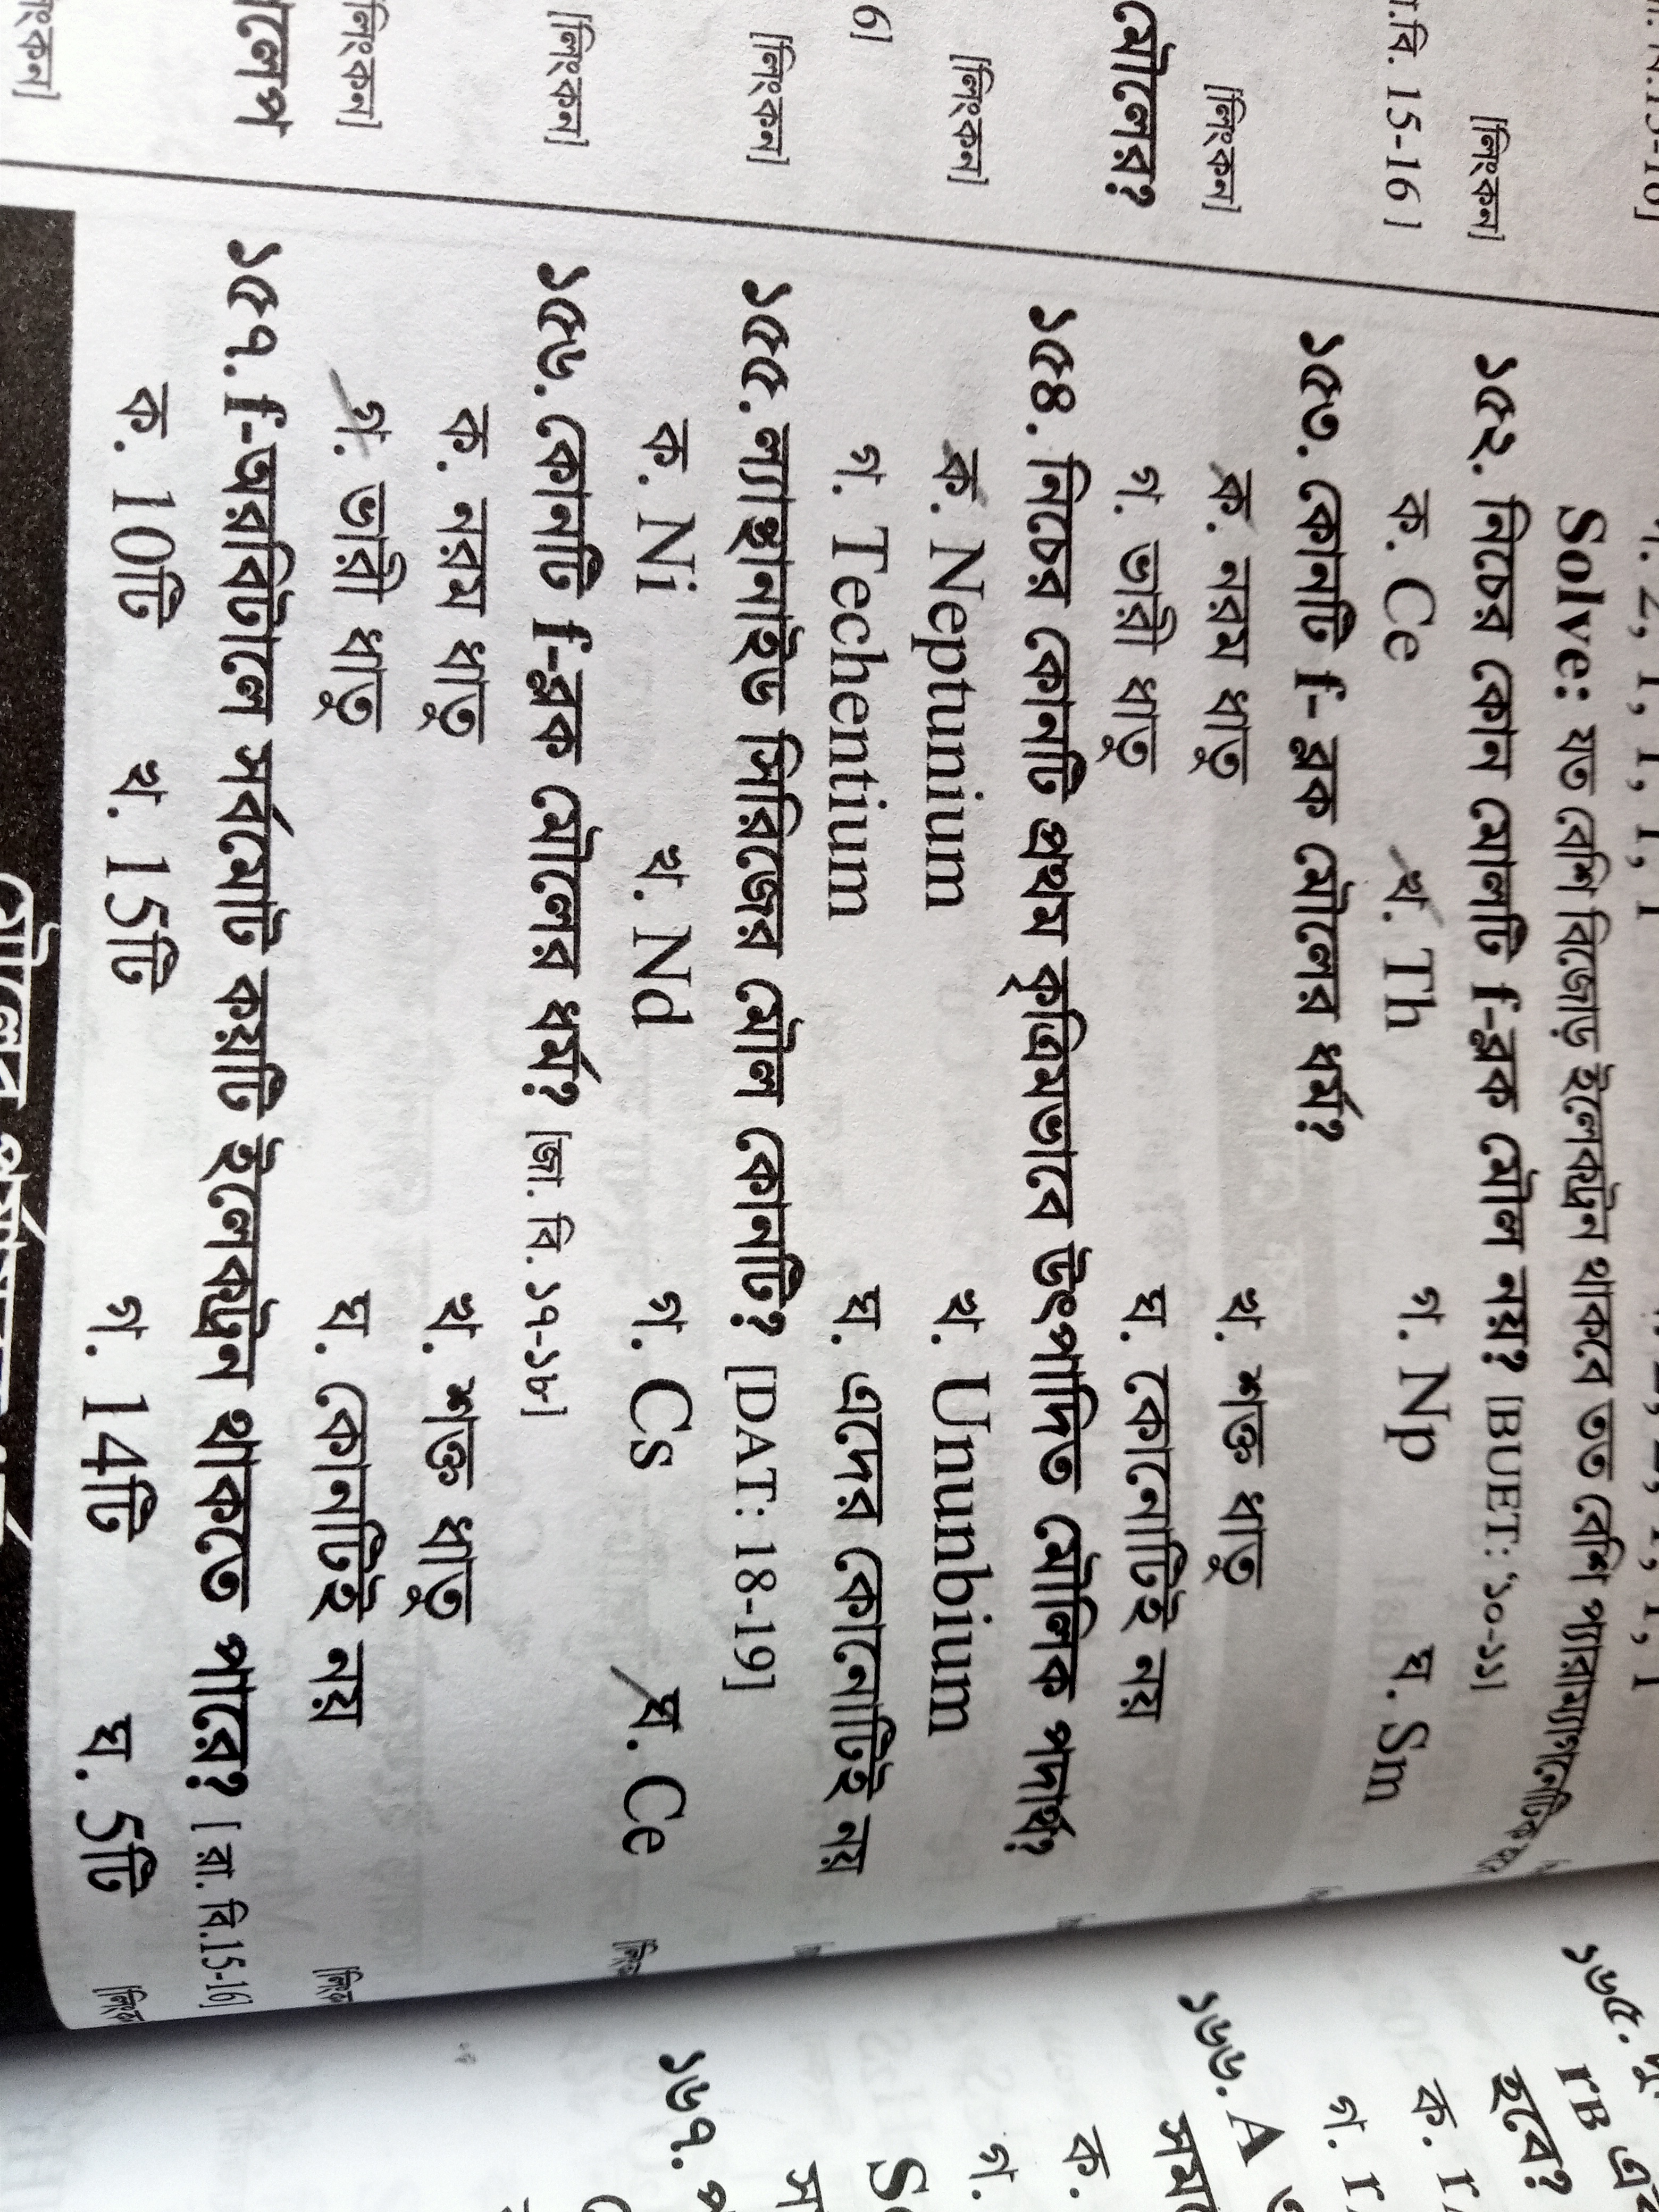 [লিংকন]
া.বি. 15-16 ]
[লিংকন]
মৌলের?
[লিংকন]
6]
[লিংকন]
[লিংকন]
[লিংকন]
Solve: যত বেশি বিজোড় ইলেকট্রন থাকবে তত বেশি প্যারাম্যাগনেটিক
১৫২. নিচের কোন মোলটি f-ব্লক মৌল নয়? [BUET: '১০-১১]
ক. Ce খ. Th গ. Np ঘ. Sm
১৫৩. কোনটি f- ব্লক মৌলের ধর্ম?
ক. নরম ধাতু খ. শক্ত ধাতু
গ. ভারী ধাতু ঘ. কোনোটিই নয়
১৫৪. নিচের কোনটি প্রথম কৃত্রিমভাবে উৎপাদিত মৌলিক পদার্থ?
ক. Neptunium খ. Ununbium
গ. Techentium ঘ. এদের কোনোটিই নয়
১৫৫. ল্যান্থানাইড সিরিজের মৌল কোনটি? [DAT: 18-19]
ক. Ni খ. Nd গ. Cs ঘ. Ce
১৫৬. কোনটি f-ব্লক মৌলের ধর্ম? [জা. বি. ১৭-১৮]
ক. নরম ধাতু খ. শক্ত ধাতু
গ. ভারী ধাতু ঘ. কোনটিই নয়
১৫৭. f-অরবিটালে সর্বমোট কয়টি ইলেকট্রন থাকতে পারে? [ রা. বি.15-16]
ক. 10টি খ. 15টি গ. 14টি ঘ. 5টি
১৬৫.
rB
হবে?
ক. r
গ. r
১৬৬. A
ক.
গ.
১৬৭.